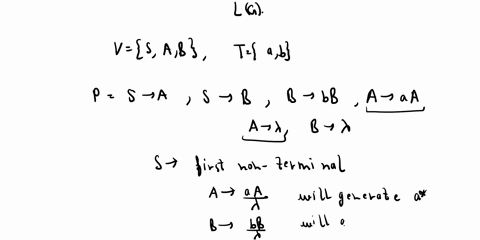 L(G).
V = {S, A, B}, T = { a, b }
P = S → A , S → B , B → bB , A → aA
A → λ, B → λ
S → first non-terminal
A → aA/λ will generate a*
B → bB/λ will